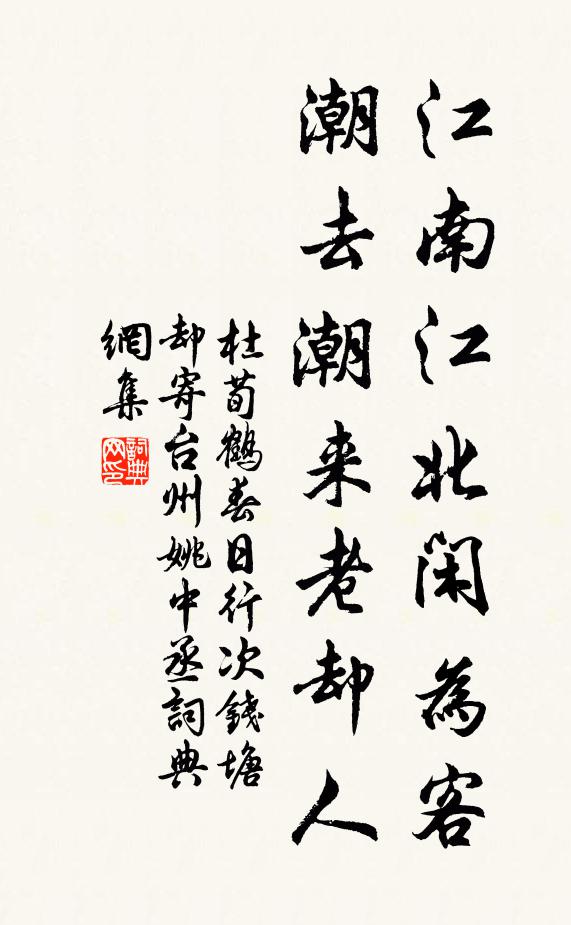 江南江北閑為客
潮去潮来老却人
杜荀鶴春日行次錢塘
却寄台州姚中丞詞典
網集
詞典
网印